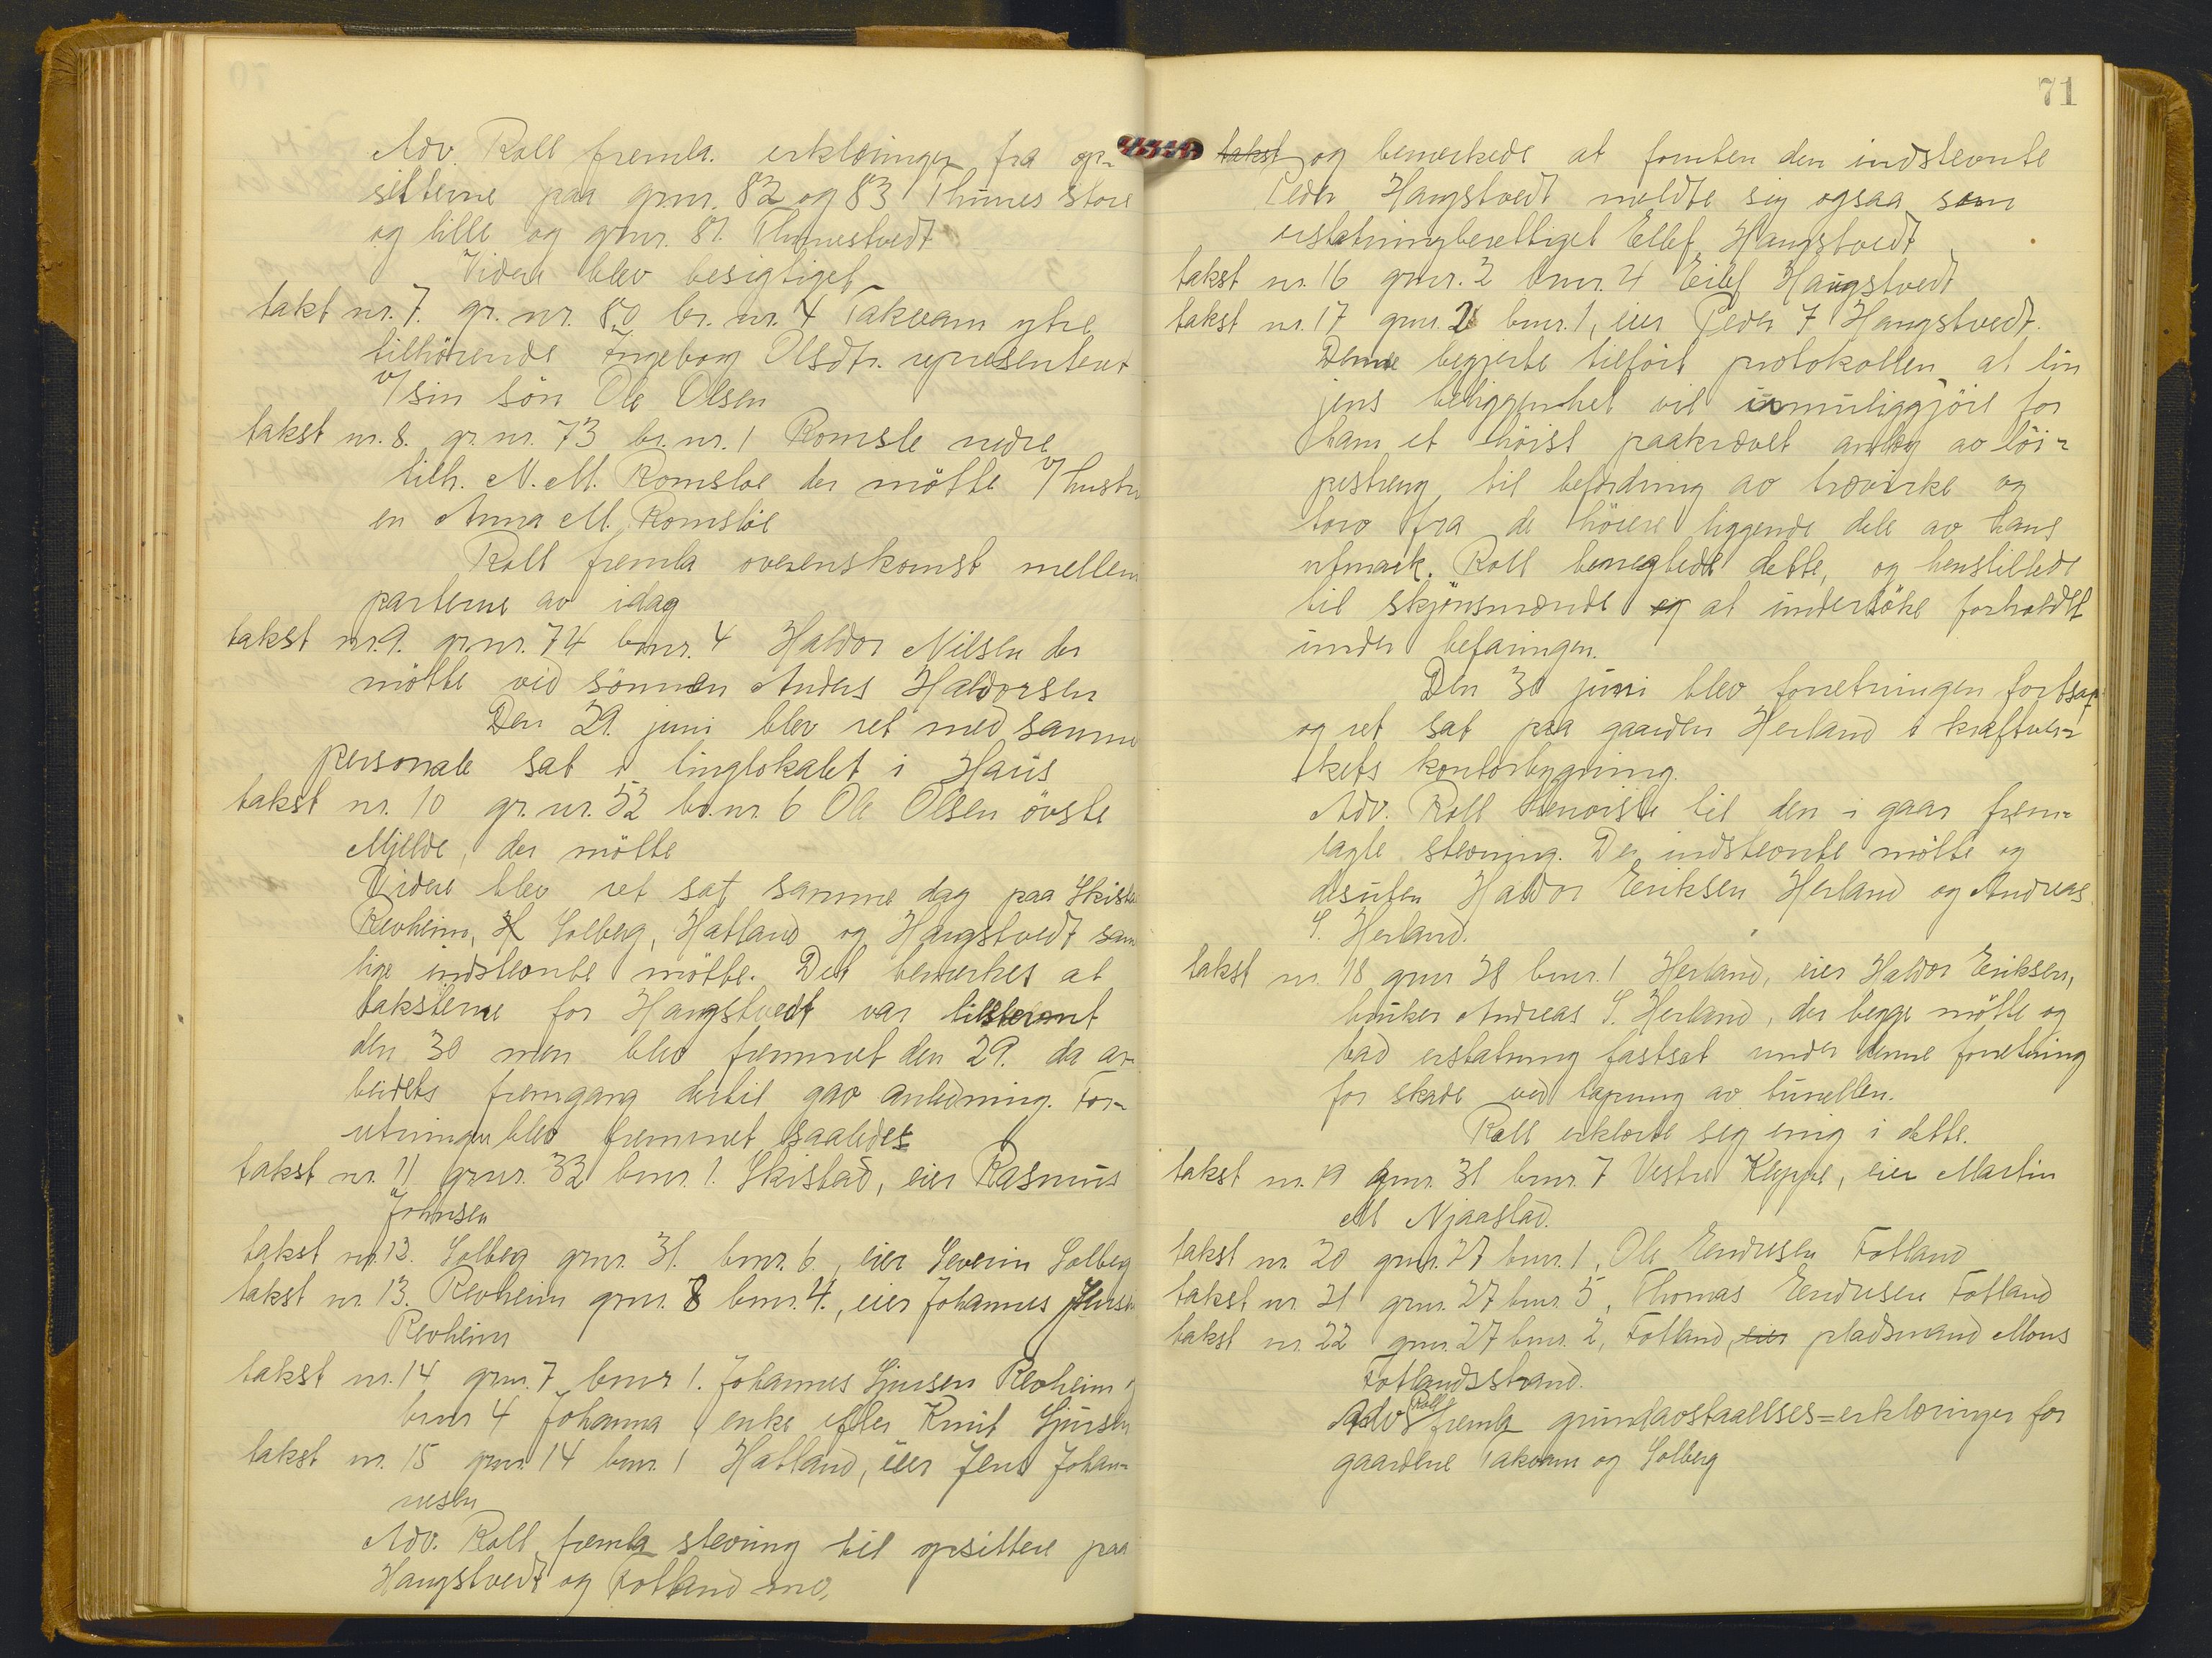 Adv. Roll fremla. erklæringer fra op-
sitterne paa grnr. 82 og 83 Thunes store
og lille og grnr. 81. Thunestvedt
Videre blev besigtiget
takt nr. 7. gr. nr. 80 br. nr. 4 Takvam ytre
tilhörende Ingeborg Olsdtr. representert
v/ sin sön Ole Olsen
takst nr. 8. gr. nr. 73 br. nr. 1 Romsle nedre
tilh. N. M. Romsloe der mötte v/ hustru
en Anna M. Romslöe
Roll fremla overenskomst mellem
parterne av idag
takst nr. 9. grnr. 74 bnr. 4 Haldor Nilsen der
mötte ved sönnen Anders Haldorsen
Den 29. juni blev ret med samme
personale sat i tinglokalet i Haus
takst nr. 10 gr. nr. 52 br. nr. 6 Ole Olsen övste
Mjelde, der mötte
Videre blev ret sat samme dag paa Skista
Revheim, H Solberg, Hatland og Haugstvedt sam
lige indstevnte mötte. Det bemerkes at
taksterne for Haugstvedt var tilstevnt
den 30 men blev fremmet den 29. da ar-
beidets fremgang dertil gav anledning. For-
retningen blev fremmet saaledes
takst nr. 11 grnr. 32 bnr. 1. Skistad, eier Rasmus
Johnsen
takst nr. 12. Solberg grnr. 31. bnr. 6., eier Severin Solberg
takst nr. 13. Revheim grnr. 8 bnr. 4., eier Johannes
Revheim
takst nr. 14 grnr. 7 bnr 1. Johannes Sjursen Revheim
bnr 4 Johanna enke efter Knut Sjursen
takst nr. 15 grnr. 14 bnr. 1 Hatland, eier Jens Johan-
nesen
Adv. Roll fremla stevning til opsittere paa
Haugstvedt og Fotland mo.
71
takst og bemerkede at foruten den indstevnte
Peder Haugstvedt meldte sig ogsaa som
erstatningberettiget Ellef Haugstvedt
takst nr. 16 grnr. 2 bnr. 4 Eilef Haugstvedt
takst nr. 17 grnr. 2 bnr. 1, eier Peder T Haugstvedt.
Denne begjerte tilfört protokollen at lin
jens beliggenhet vil umuliggjöre for
ham et höist paakrævet anlæg av löi-
pestreng til befordring av trævirke og
torv fra de höiere liggende dele av hans
utmark. Roll benegtede dette, og henstillede
til skjönsmænde og at undersöke forholdet
under befaringen.
Den 30 juni blev forretningen fortsat
og ret sat paa gaarden Herland i kraftver-
kets kontorbygning.
Adv. Roll henviste til den i gaar frem-
lagte stevning. De indstevnte mötte og
desuten Haldor Eriksen Herland og Andreas
S. Herland.
takst nr. 18 grnr 28 bnr. 1 Herland, eier Haldor Eriksen,
bruker Andreas S. Herland, der begge mötte og
bad erstatning fastsat under denne forretning
for skade ved tapning av tunellen.
Roll erklærte sig enig i dette.
takst nr. 19 gnr. 31 bnr. 7 Vestre Kleppe, eier Martin
M Njaastad.
takst nr. 20 grnr. 27 bnr. 1, Ole Endresen Fotland
takst nr. 21 grnr. 27 bnr. 5, Thomas Endresen Fotland
takst nr. 22 grnr. 27 bnr. 2, Fotland, eier pladsmand Mons
Fotlandsstrand.
Adv Roll fremla grundavstaaelses=erklæringer for
gaardene Takvam og Solberg